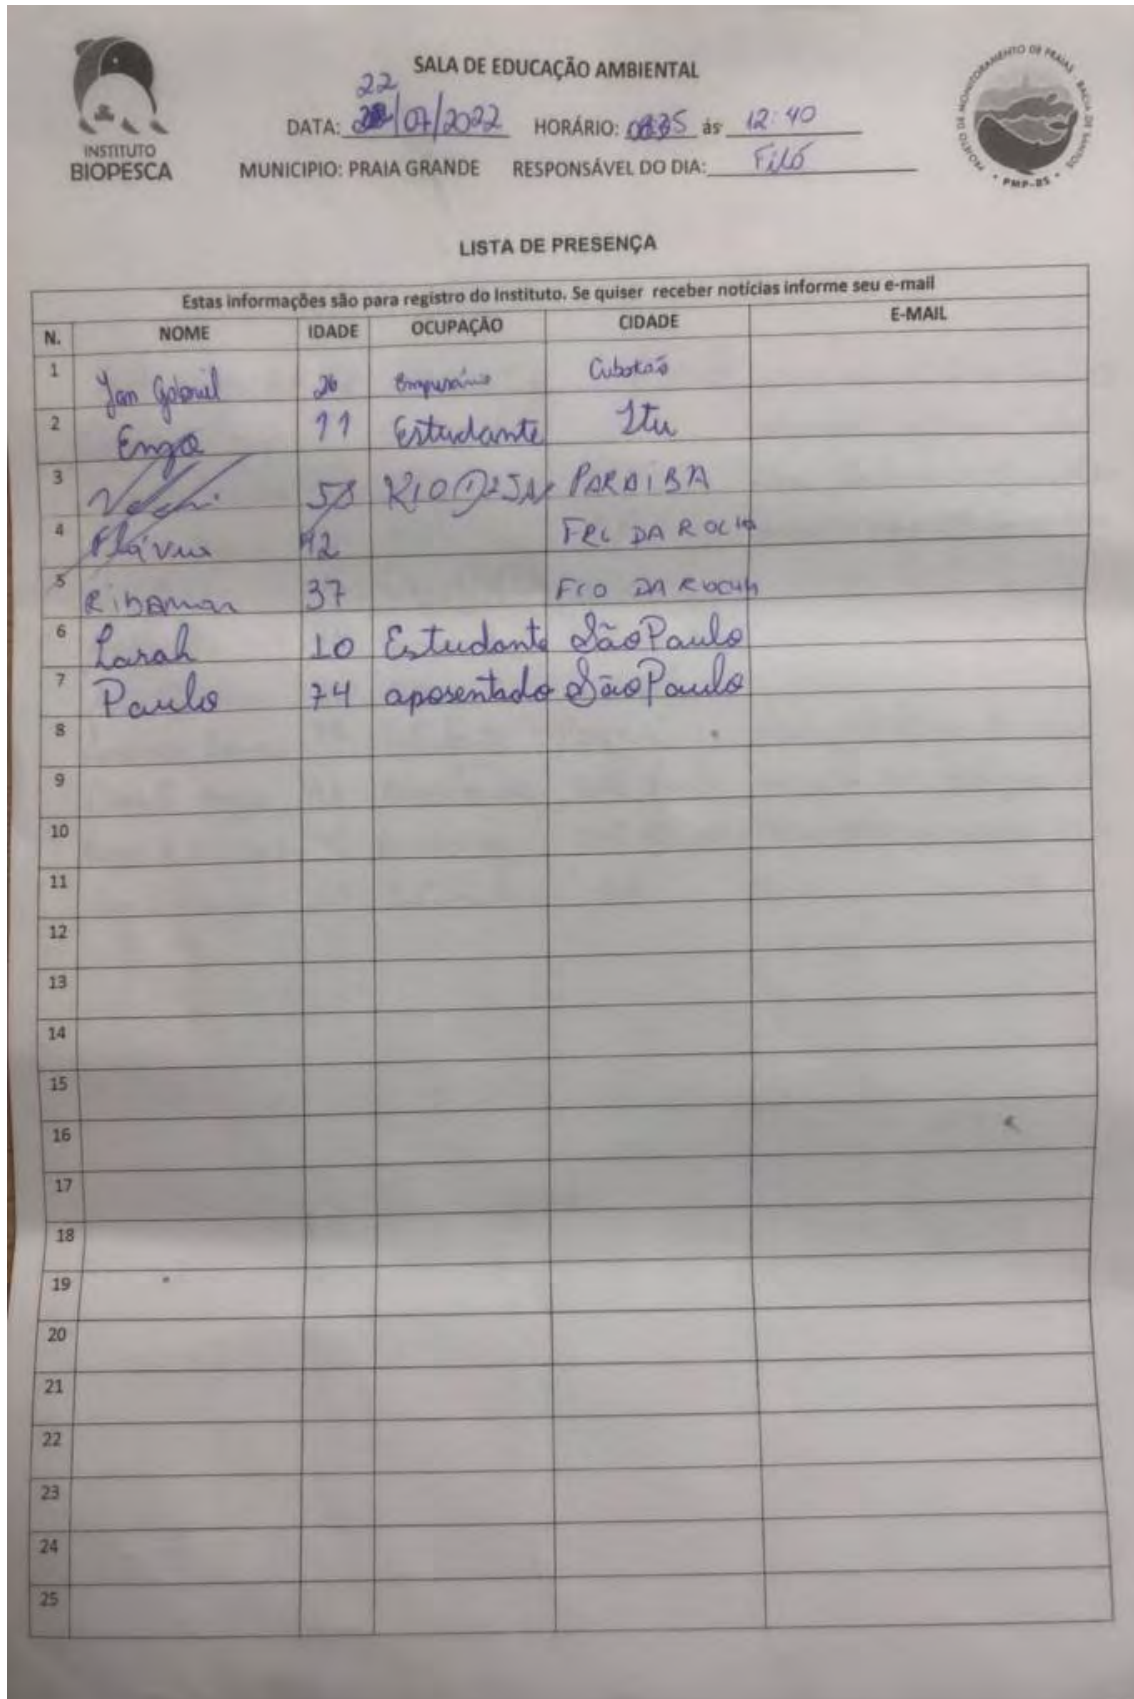 INSTITUTO
BIOPESCA
SALA DE EDUCAÇÃO AMBIENTAL
22
DATA: /07/2022 HORÁRIO: ás 12:40
MUNICIPIO: PRAIA GRANDE RESPONSÁVEL DO DIA: Filó
PROJETO DE MONITORAMENTO DE PRAIAS - BACIA DE SANTOS
• PMP-BS •
LISTA DE PRESENÇA
Estas informações são para registro do Instituto. Se quiser receber notícias informe seu e-mail
N. NOME IDADE OCUPAÇÃO CIDADE E-MAIL
1 Yan Gabriel 26 Empresário Cubatão
2 Enzo 11 Estudante Itu
3 58 PARAIBA
4 Flávia 42 DA ROCHA
5 Ribamar 37 FCO DA ROCHA
6 Larah 10 Estudante São Paulo
7 Paulo 74 aposentado São Paulo
8
9
10
11
12
13
14
15
16
17
18
19
20
21
22
23
24
25